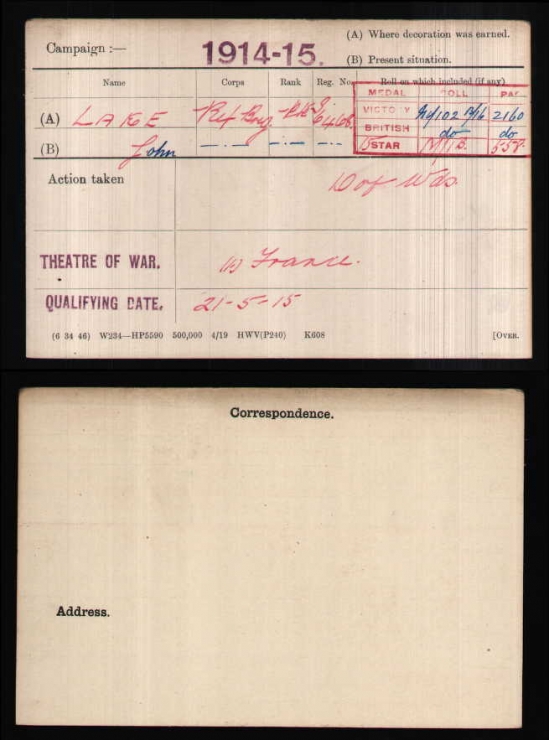 Campaign :—
1914-15.
(A) Where decoration was earned.
(B) Present situation.
Name Corps Rank Reg. No. Roll on which included (if any)
MEDAL ROLL PAGE
(A) LAKE
VICTORY 2160
(B) John
BRITISH do do
STAR
Action taken
D of Wds.
THEATRE OF WAR. (1) France.
QUALIFYING DATE. 21-5-15
(6 34 46) W234—HP5590 500,000 4/19 HWV(P240) K608 [OVER.
Correspondence.
Address.